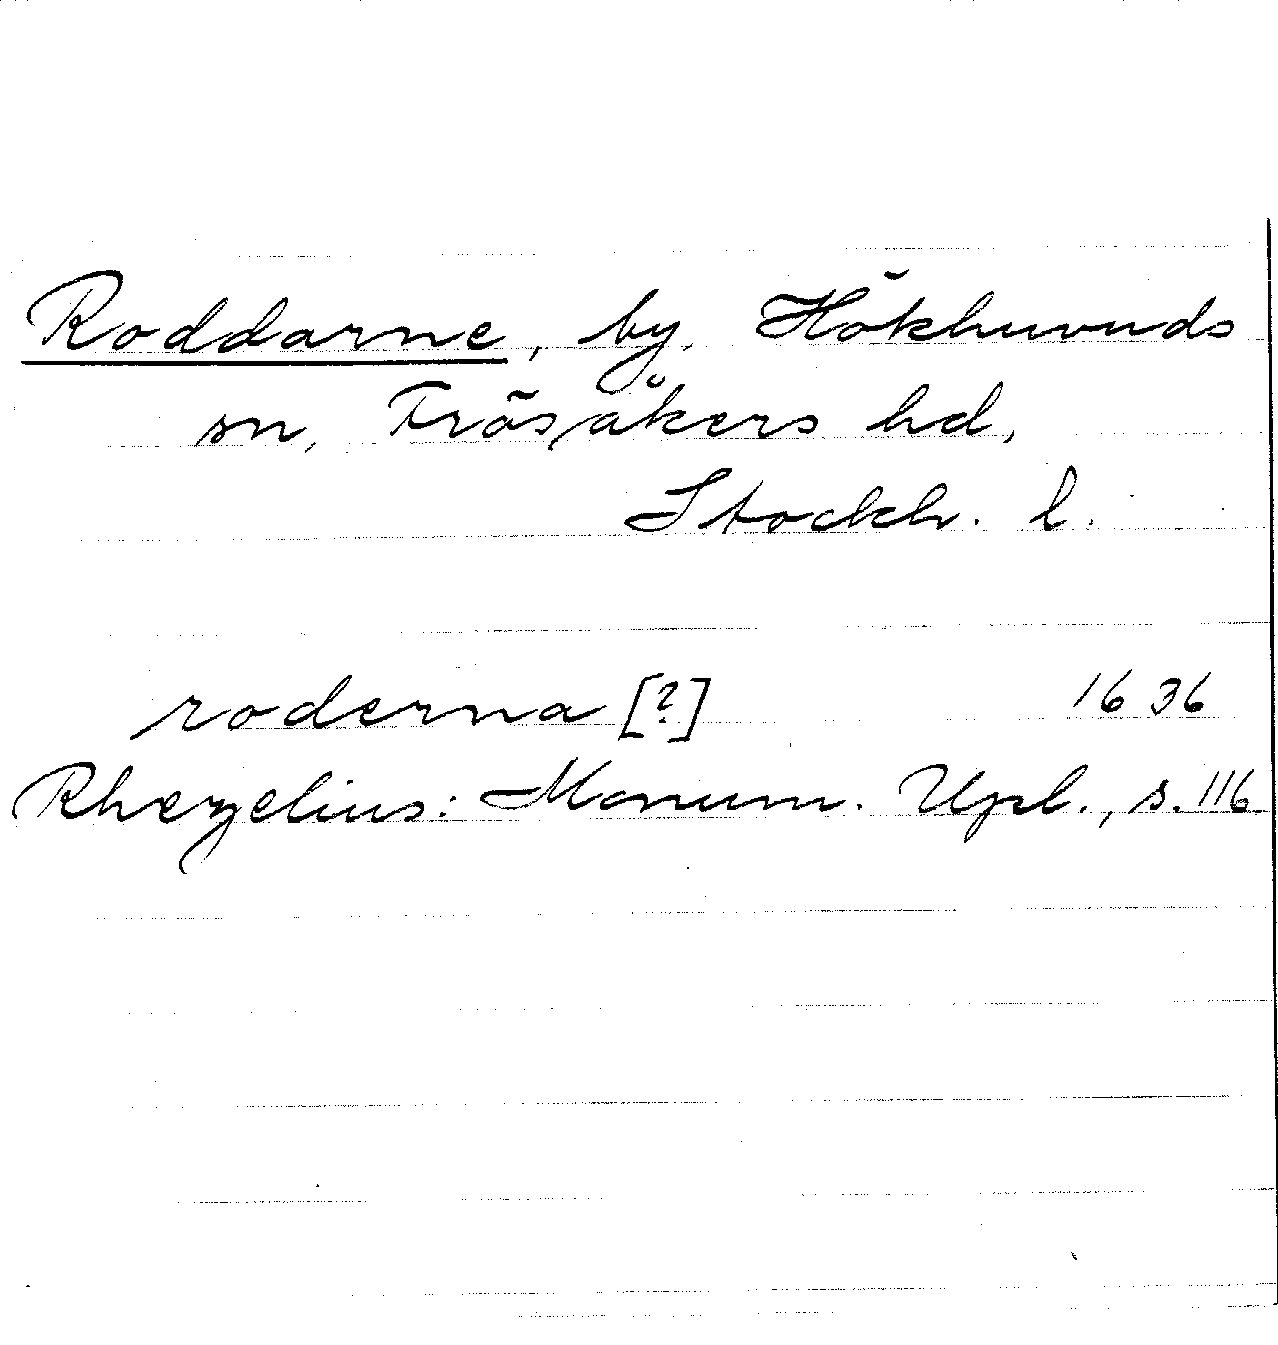 Roddarne, by, Hökhuvuds
sn, Frösåkers hd,
Stockh. l.
roderna [?] 1636
Rhezelius: Monum. Upl., s. 116.